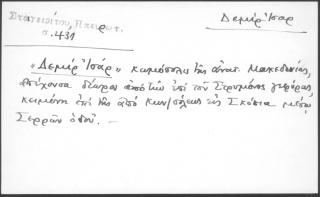 Σταγειρίτου, Ηπειρωτ.
σ. 431
Δεμίρ Ἰσάρ
«Δεμίρ Ἰσάρ» κωμόπολις τῆς ἀνατ. Μακεδονίας,
ἀπέχουσα δίωρον ἀπό τῶν ἐπί τοῦ Στρυμόνος γεφύρας,
κειμένη ἐπί τῆς ἀπό Κων/πόλεως εἰς Σκόπια μέσῳ
Σερρῶν ὁδοῦ. —